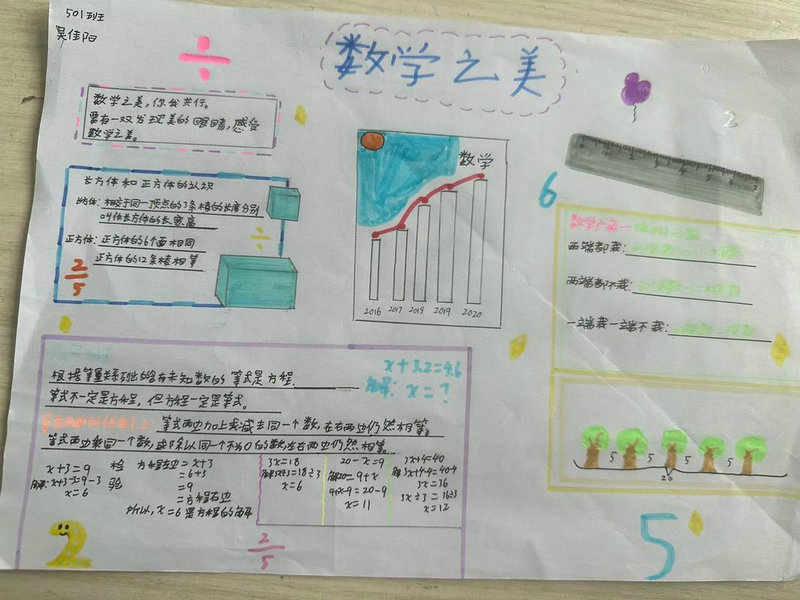 501班
吴佳阳
÷
数学之美
数学之美,你我共行。
要有一双发现美的眼睛,感受
数学之美。
长方体和正方体的认识
长方体:相交于同一顶点的3条棱的长度分别
叫作长方体的长宽高
正方体:正方体的6个面相同
正方体的12条棱相等
÷
2/5
数学
2016 2017 2018 2019 2020
2
6
数学广第一
两端都栽:
两端都不栽:
一端栽一端不栽:
5 5 5 5
20
x+3.2=4.6
解: x=?
根据等量关系列出的含有未知数的等式是方程.
等式不一定是方程,但方程一定是等式。
等式两边加上或减去同一个数,左右两边仍然相等。
等式两边乘同一个数,或除以同一个不为0的数,左右两边仍然相等。
x+3=9
解:x+3-3=9-3
x=6
检验
方程左边=x+3
=6+3
=9
=方程右边
所以,x=6是方程的解
3x=18
解:3x÷3=18÷3
x=6
20-x=9
解:20=9+x
9+x-9=20-9
x=11
3x+4=40
解:3x+4-4=40-4
3x=36
x=12
2
2/5
5